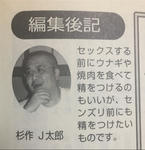 編集後記
セックスする
前にウナギや
焼肉を食べて
精をつけるの
もいいが、セ
ンズリ前にも
精をつけたい
ものです。
杉作 J太郎